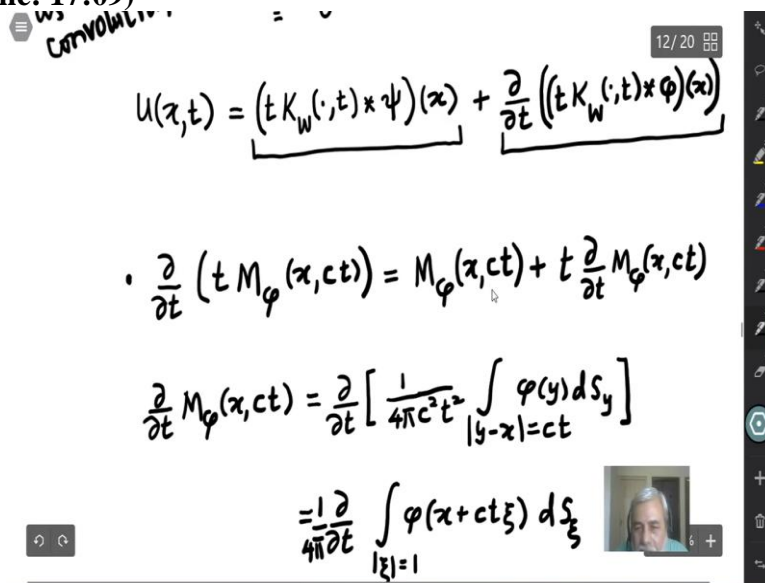 convolution =
12/20
u(x,t) = (t K_w(·,t) * ψ)(x) + ∂/∂t ((t K_w(·,t) * φ)(x))
· ∂/∂t (t M_φ(x,ct)) = M_φ(x,ct) + t ∂/∂t M_φ(x,ct)
∂/∂t M_φ(x,ct) = ∂/∂t [ 1/4πc²t² ∫_{|y-x|=ct} φ(y) dS_y ]
= 1/4π ∂/∂t ∫_{|ξ|=1} φ(x+ctξ) dS_ξ